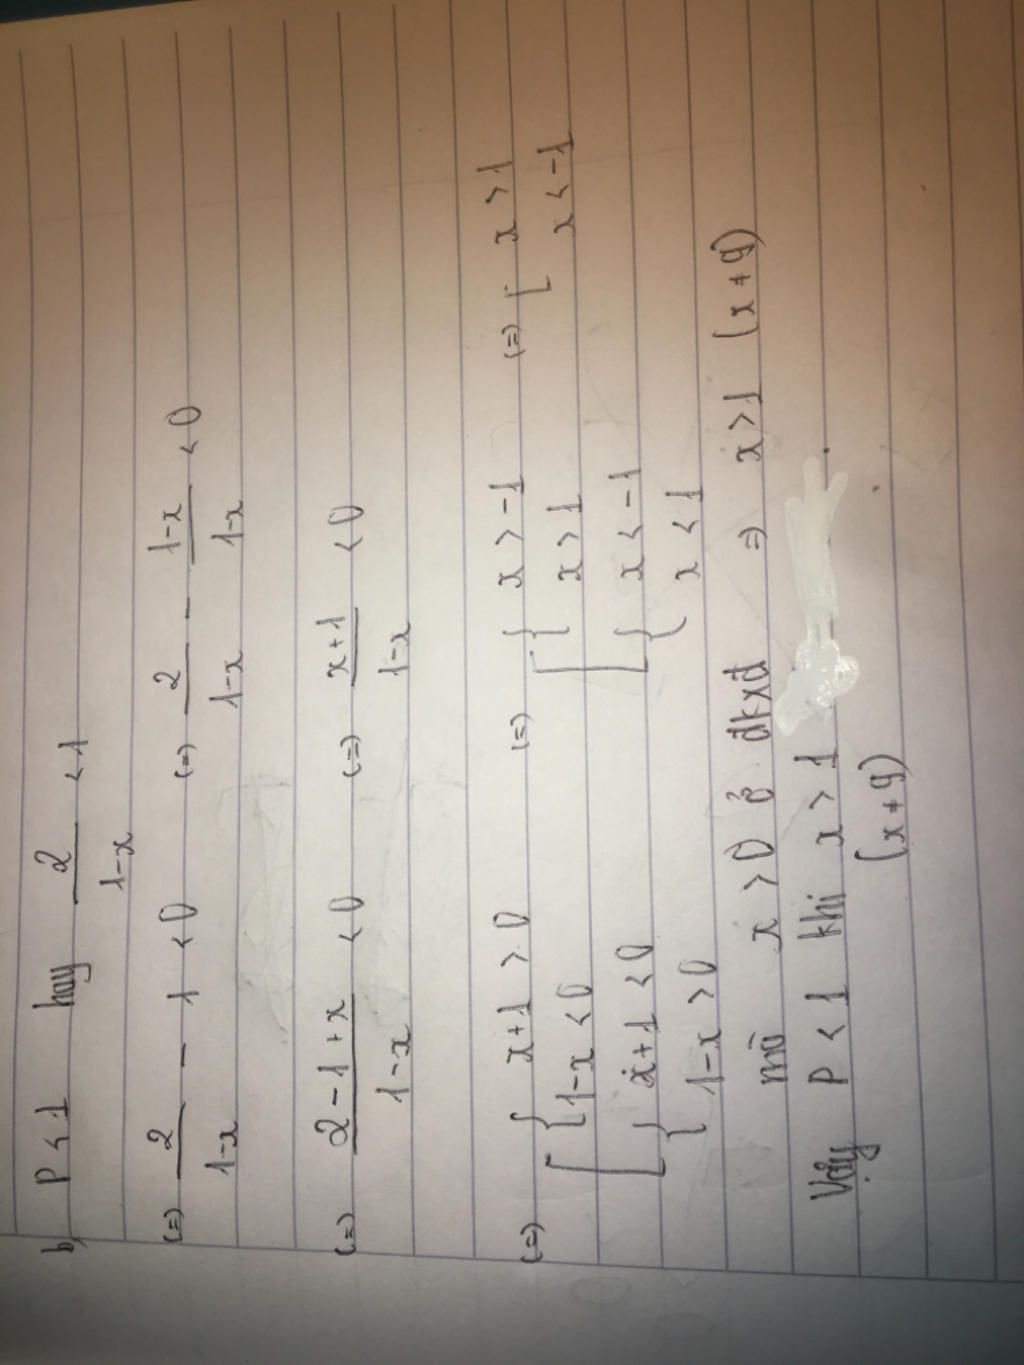 b, P < 1 hay 2/(1-x) < 1
(=) 2/(1-x) - 1 < 0 (=) 2/(1-x) - (1-x)/(1-x) < 0
(=) (2-1+x)/(1-x) < 0 (=) (x+1)/(1-x) < 0
(=) [ { x+1 > 0 (=) [ { x > -1 (=) [ x > 1
1-x < 0 x > 1 x < -1
{ x+1 < 0 { x < -1
1-x > 0 x < 1
mà x > 0 ở đkxđ => x > 1 (x ≠ 9)
Vậy P < 1 khi x > 1
(x ≠ 9)